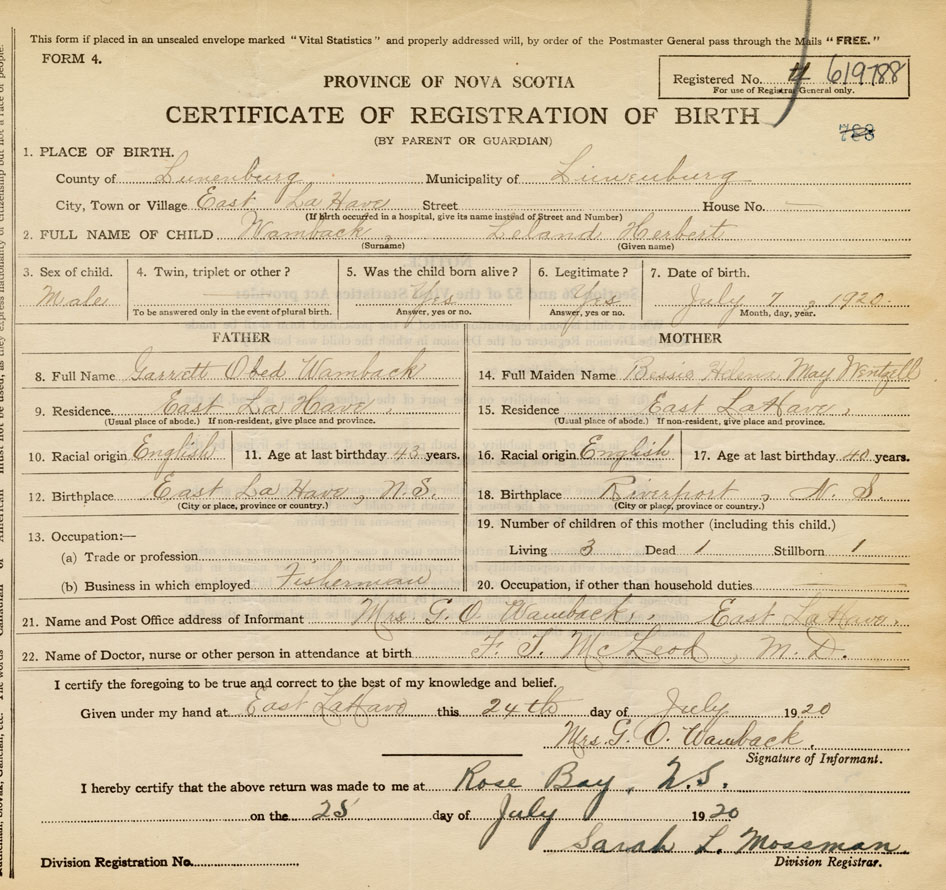 This form if placed in an unsealed envelope marked "Vital Statistics" and properly addressed will, by order of the Postmaster General pass through the Mails "FREE."
FORM 4.
Registered No. # 619788
For use of Registrar General only.
PROVINCE OF NOVA SCOTIA
CERTIFICATE OF REGISTRATION OF BIRTH
(BY PARENT OR GUARDIAN)
788
1. PLACE OF BIRTH.
County of Lunenburg Municipality of Lunenburg
City, Town or Village East La Have Street House No. —
(If birth occurred in a hospital, give its name instead of Street and Number)
2. FULL NAME OF CHILD Wamback, Leland Herbert
(Surname) (Given name)
3. Sex of child. 4. Twin, triplet or other? 5. Was the child born alive? 6. Legitimate? 7. Date of birth.
Male — Yes Yes July 7, 1920.
To be answered only in the event of plural birth. Answer, yes or no. Answer, yes or no. Month, day, year.
FATHER
8. Full Name Garrett Obed Wamback
9. Residence East La Have.
(Usual place of abode.) If non-resident, give place and province.
10. Racial origin English 11. Age at last birthday 43 years.
12. Birthplace East La Have, N.S.
(City or place, province or country.)
13. Occupation:—
(a) Trade or profession
(b) Business in which employed Fisherman
MOTHER
14. Full Maiden Name Bessie Helena May Wentzell
15. Residence East LaHave.
(Usual place of abode.) If non-resident, give place and province.
16. Racial origin English 17. Age at last birthday 40 years.
18. Birthplace Riverport, N. S.
(City or place, province or country.)
19. Number of children of this mother (including this child.)
Living 3 Dead 1 Stillborn 1
20. Occupation, if other than household duties.
21. Name and Post Office address of Informant Mrs. G. O. Wamback, East LaHave.
22. Name of Doctor, nurse or other person in attendance at birth F. T. McLeod, M. D.
I certify the foregoing to be true and correct to the best of my knowledge and belief.
Given under my hand at East LaHave this 24th day of July 1920
Mrs. G. O. Wamback.
Signature of Informant.
I hereby certify that the above return was made to me at Rose Bay, N.S.
on the 25 day of July 1920
Sarah L. Mossman
Division Registration No. Division Registrar.